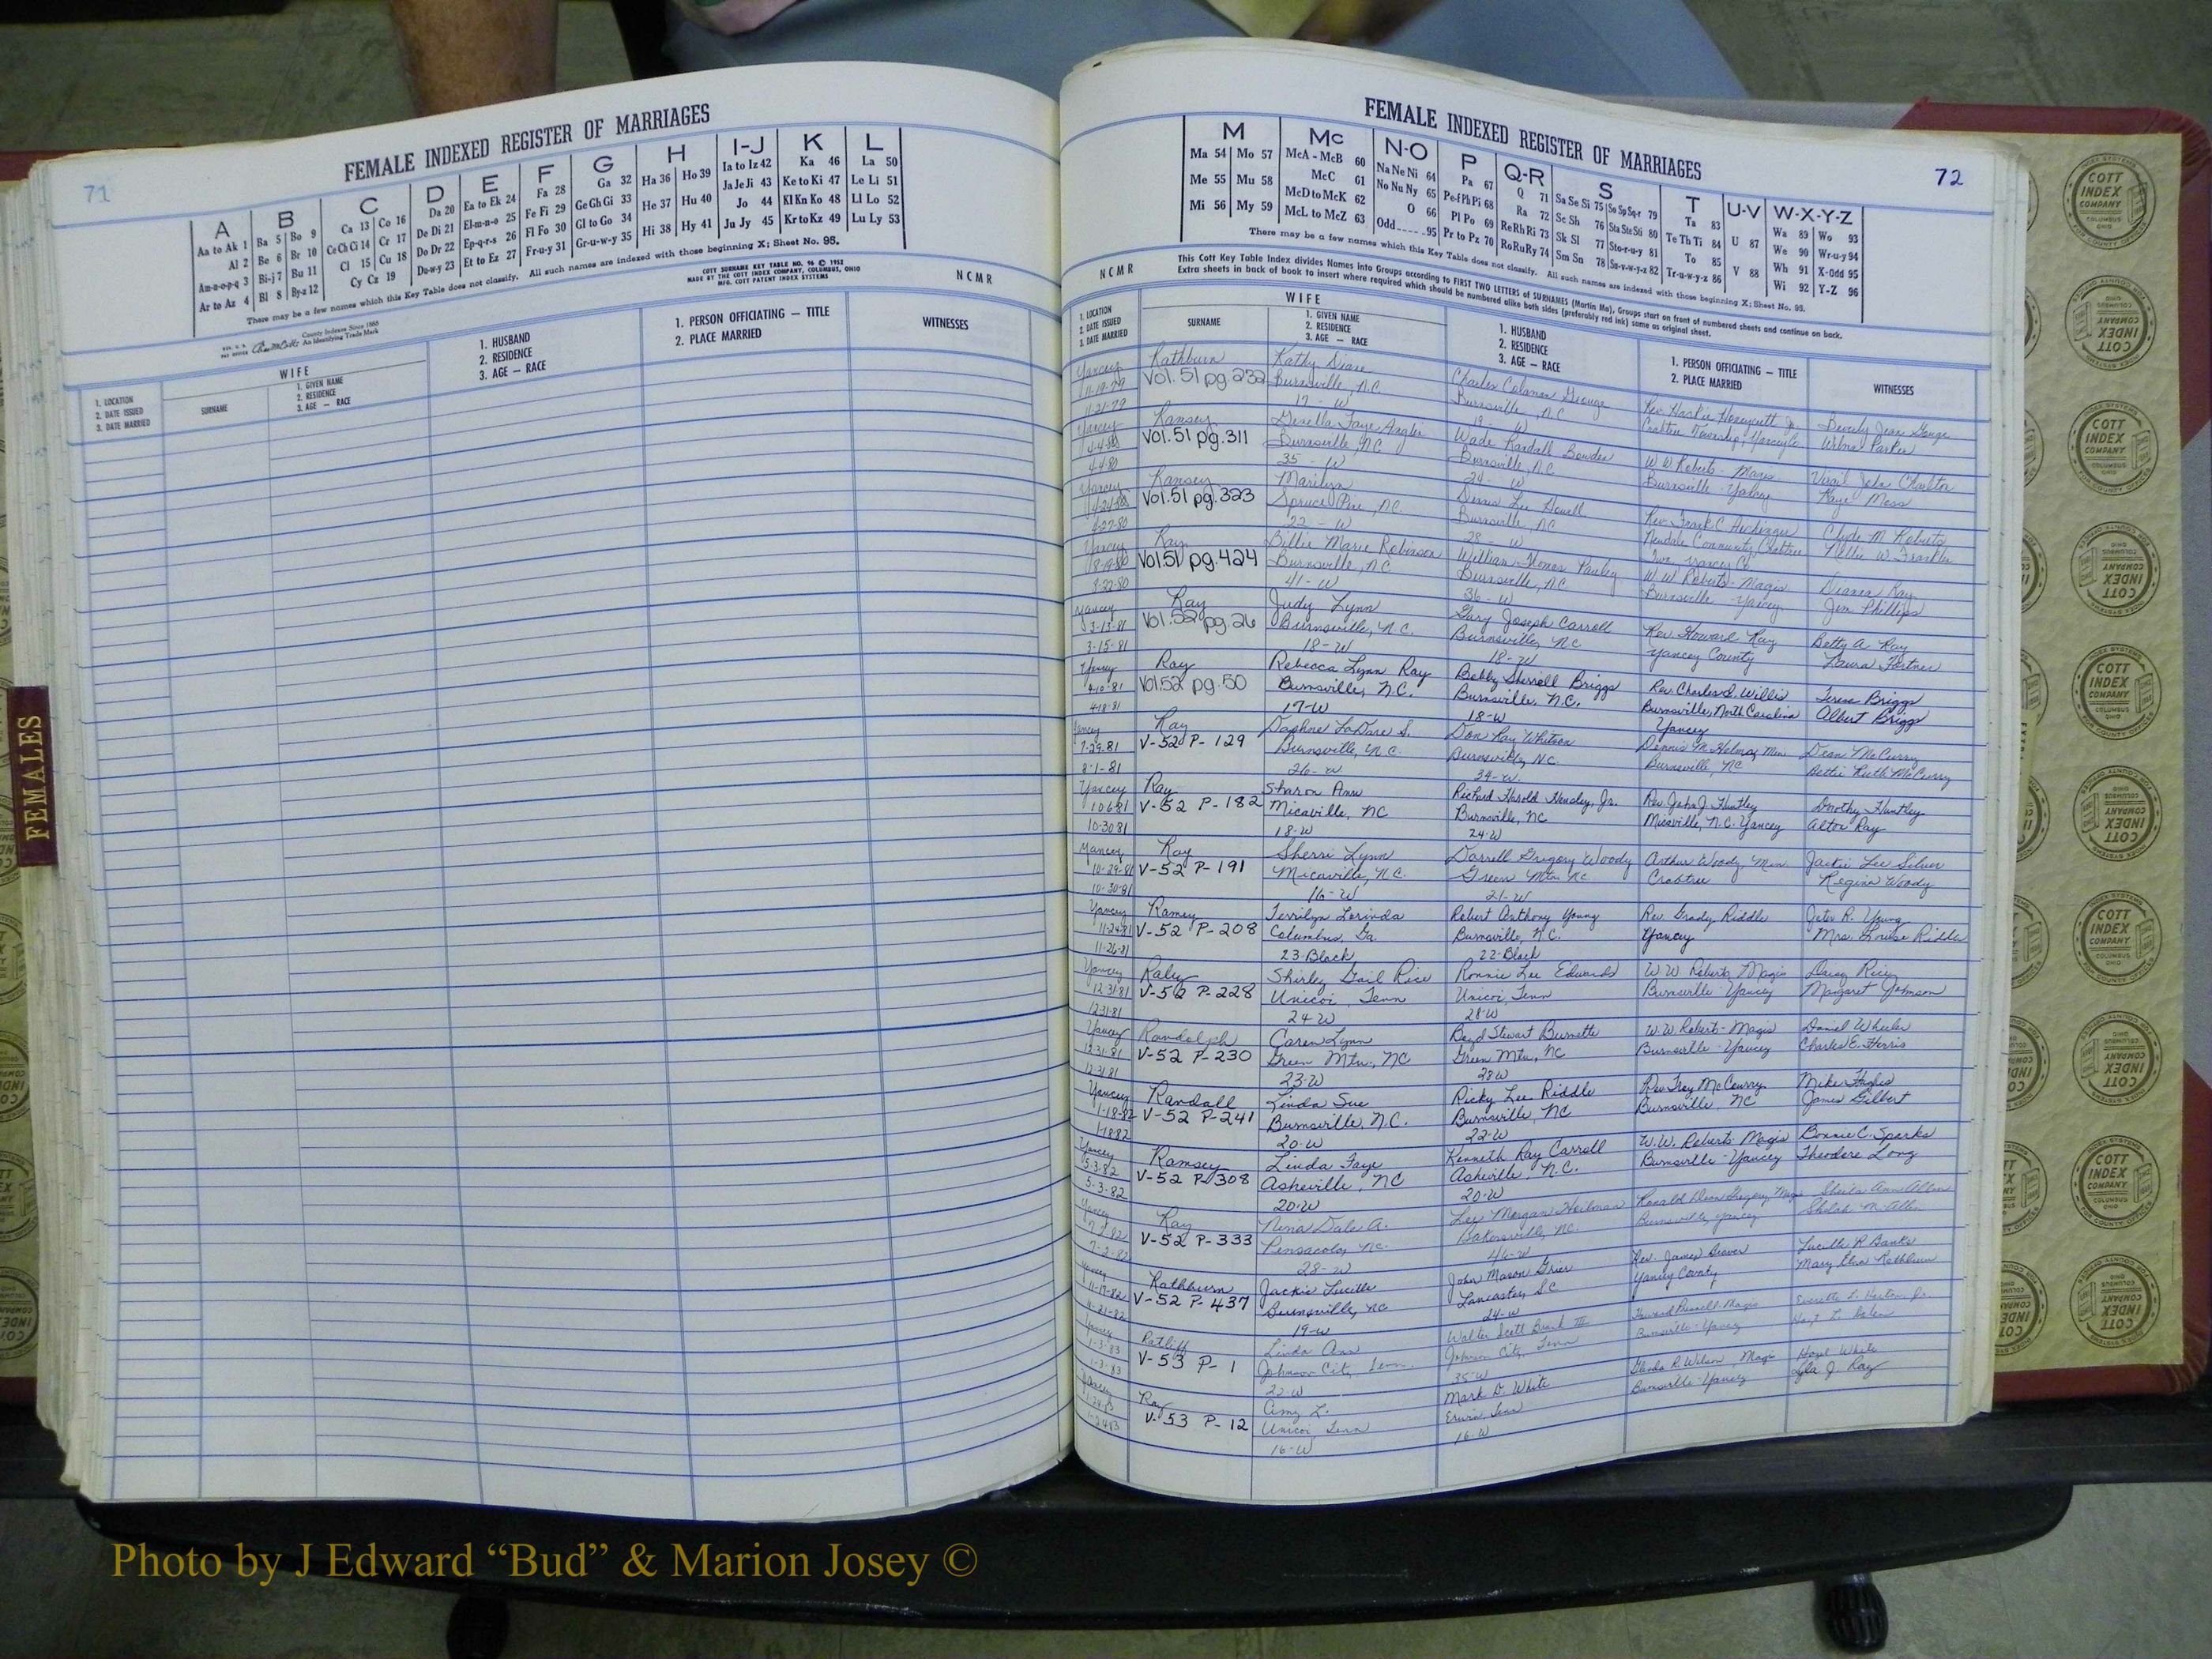 71
FEMALE INDEXED REGISTER OF MARRIAGES
A B C D E F G H I-J K L
Aa to Ak 1 Ba 5 Bo 9 Ca 13 Co 16 Da 20 Ea to Ek 24 Fa 28 Ga 32 Ha 36 Ho 39 Ia to Iz 42 Ka 46 La 50
Al 2 Be 6 Br 10 Ce Ch Ci 14 Cr 17 De Di 21 El-m-n-o 25 Fe Fi 29 Ge Gh Gi 33 He 37 Hu 40 Ja Je Ji 43 Ke to Ki 47 Le Li 51
Am-n-o-p-q 3 Bi-j 7 Bu 11 Cl 15 Cu 18 Do Dr 22 Ep-q-r-s 26 Fl Fo 30 Gl to Go 34 Hi 38 Hy 41 Jo 44 Kl Kn Ko 48 Ll Lo 52
Ar to Az 4 Bl 8 By-z 12 Cy Cz 19 Du-w-y 23 Et to Ez 27 Fr-u-y 31 Gr-u-w-y 35 Ju Jy 45 Kr to Kz 49 Lu Ly 53
There may be a few names which this Key Table does not classify. All such names are indexed with those beginning X; Sheet No. 95.
COTT SURNAME KEY TABLE NO. 96 © 1952
MADE BY THE COTT INDEX COMPANY, COLUMBUS, OHIO
MFG. COTT PATENT INDEX SYSTEMS
NCMR
County Indexes Since 1888
An Identifying Trade Mark
WIFE
1. LOCATION
2. DATE ISSUED
3. DATE MARRIED
SURNAME
1. GIVEN NAME
2. RESIDENCE
3. AGE — RACE
1. HUSBAND
2. RESIDENCE
3. AGE — RACE
1. PERSON OFFICIATING — TITLE
2. PLACE MARRIED
WITNESSES
FEMALES
FEMALE INDEXED REGISTER OF MARRIAGES
72
M Mc N-O P Q-R S T U-V W-X-Y-Z
Ma 54 Mo 57 McA - McB 60 Na Ne Ni 64 Pa 67 Q 71 Sa Se Si 75 So Sp Sq-r 79 Ta 83 Wa 89 Wo 93
Me 55 Mu 58 McC 61 No Nu Ny 65 Pe-f Ph Pi 68 Ra 72 Sc Sh 76 Sta Ste Sti 80 Te Th Ti 84 U 87 We 90 Wr-u-y 94
Mi 56 My 59 McD to McK 62 O 66 Pl Po 69 Re Rh Ri 73 Sk Sl 77 Sto-r-u-y 81 To 85 Wh 91 X-Odd 95
McL to McZ 63 Odd 95 Pr to Pz 70 Ro Ru Ry 74 Sm Sn 78 Su-v-w-y-z 82 Tr-u-w-y-z 86 V 88 Wi 92 Y-Z 96
There may be a few names which this Key Table does not classify. All such names are indexed with those beginning X; Sheet No. 95.
NCMR
This Cott Key Table Index divides Names into Groups according to FIRST TWO LETTERS of SURNAMES (Martin Ma), Groups start on front of numbered sheets and continue on back.
Extra sheets in back of book to insert where required which should be numbered alike both sides (preferably red ink) same as original sheet.
WIFE
1. LOCATION
2. DATE ISSUED
3. DATE MARRIED
SURNAME
1. GIVEN NAME
2. RESIDENCE
3. AGE — RACE
1. HUSBAND
2. RESIDENCE
3. AGE — RACE
1. PERSON OFFICIATING — TITLE
2. PLACE MARRIED
WITNESSES
Yancey Rathburn Kathy Diane Charles Coleman George Rev. Honeycutt Jr. Beverly Jean
11-19-79 Vol. 51 pg. 232 Burnsville, N.C. Burnsville, N.C. Crabtree Township, Wilma Parker
11-21-79 17 - W 19 - W
Yancey Ramsey Faye Angler Wade Randall Bowder W.W. Roberts - Magis Virgil
4-4-80 Vol. 51 pg. 311 Burnsville, NC Burnsville, N.C. Burnsville - Yancey Kaye Moss
4-4-80 35 - W 24 - W
Yancey Ramsey Marilyn Dennis Lee Howell Rev. Frank C. Clyde M. Roberts
4-24-80 Vol. 51 pg. 323 Spruce Pine, N.C. Burnsville, NC Newdale Community, Crabtree Nellie W. Franklin
4-27-80 22 - W 28 - W Twp. Yancey Co.
Yancey Ray Billie Marie Robinson William Thomas W.W. Roberts - Magis Ray
8-19-80 Vol. 51 pg. 424 Burnsville, N.C. Burnsville, N.C. Burnsville - Yancey Jim Phillips
8-22-80 41 - W 36 - W
Yancey Ray Judy Lynn Gary Joseph Carroll Rev. Howard Ray Betty A. Ray
3-13-81 Vol. 52 pg. 26 Burnsville, N.C. Burnsville, NC Yancey County Laura Fortner
3-15-81 18-W 18-W
Yancey Ray Rebecca Lynn Ray Bobby Sherrell Briggs Rev. Charles D. Willis Teresa Briggs
4-10-81 Vol. 52 pg. 50 Burnsville, N.C. Burnsville, N.C. Burnsville, North Carolina Albert Briggs
4-18-81 17-W 18-W Yancey
Yancey Ray Daphne LaDare S. Don Ray Whitson Dennis M. Min. Dean McCurry
7-29-81 V-52 P-129 Burnsville, N.C. Burnsville, N.C. Burnsville, NC Bettie Ruth McCurry
8-1-81 26-W 34-W
Yancey Ray Sharon Ann Richard Harold Hensley, Jr. Rev. John J. Huntley Dorothy Huntley
10-6-81 V-52 P-182 Micaville, NC Burnsville, NC Micaville, N.C. Yancey Alton Ray
10-30-81 18-W 24-W
Yancey Ray Sherri Lynn Darrell Gregory Woody Arthur Woody, Min Jackie Lee Silver
10-29-81 V-52 P-191 Micaville, N.C. Green Mtn. N.C. Crabtree Regina Woody
10-30-81 16-W 21-W
Yancey Ramey Terrilyn Lorinda Robert Anthony Young Rev. Grady Riddle Jeter R. Young
11-24-81 V-52 P-208 Columbus, Ga. Burnsville, N.C. Yancey Mrs. Louise Riddle
11-26-81 23-Black 22-Black
Yancey Raley Shirley Gail Rice Ronnie Lee Edwards W.W. Roberts, Magis Daisy Rice
12-31-81 V-52 P-228 Unicoi, Tenn Unicoi, Tenn Burnsville Yancey Margaret Johnson
12-31-81 24-W 28-W
Yancey Randolph Caren Lynn Boyd Stewart Burnette W.W. Roberts - Magis Daniel Wheeler
12-31-81 V-52 P-230 Green Mtn., NC Green Mtn., NC Burnsville - Yancey Charles E. Harris
12-31-81 23-W 28W
Yancey Randall Linda Sue Ricky Lee Riddle Rev. Troy McCurry Mike Hughes
1-18-82 V-52 P-241 Burnsville, N.C. Burnsville, NC Burnsville, NC James Gilbert
1-18-82 20-W 22-W
Yancey Ramsey Linda Faye Kenneth Ray Carroll W.W. Roberts Magis Bonnie C. Sparks
5-3-82 V-52 P-308 Asheville, NC Asheville, N.C. Burnsville - Yancey Theodore Long
5-3-82 20-W 20-W
Yancey Ray Nina Dale A. Lee Morgan Heilman Ronald Dean Gregory, Magis Sheila Ann Allen
7-2-82 V-52 P-333 Pensacola, NC. Bakersville, NC. Burnsville, Yancey
7-2-82 28-W 46-W
Yancey Rathburn Jackie Lucille John Mason Grier Rev. James Lucille P. Banks
11-17-82 V-52 P-437 Burnsville, NC Lancaster, SC Yancey County Mary Rathburn
11-21-82 19-W 24-W
Yancey Ratliff Linda Ann Walter Scott III Magis Everette
1-3-83 V-53 P-1 Johnson City, Tenn. Johnson City, Tenn Burnsville - Yancey
1-3-83 22-W 35-W
Yancey Ray Amy L. Mark D. White R. Wilson, Magis Hazel White
1-24-83 V-53 P-12 Unicoi Tenn Erwin, Tenn Burnsville - Yancey Lyla J. Ray
1-24-83 16-W 16-W
COTT INDEX COMPANY COLUMBUS OHIO
INDEX SYSTEMS
FOR COUNTY OFFICES
Photo by J Edward “Bud” & Marion Josey ©